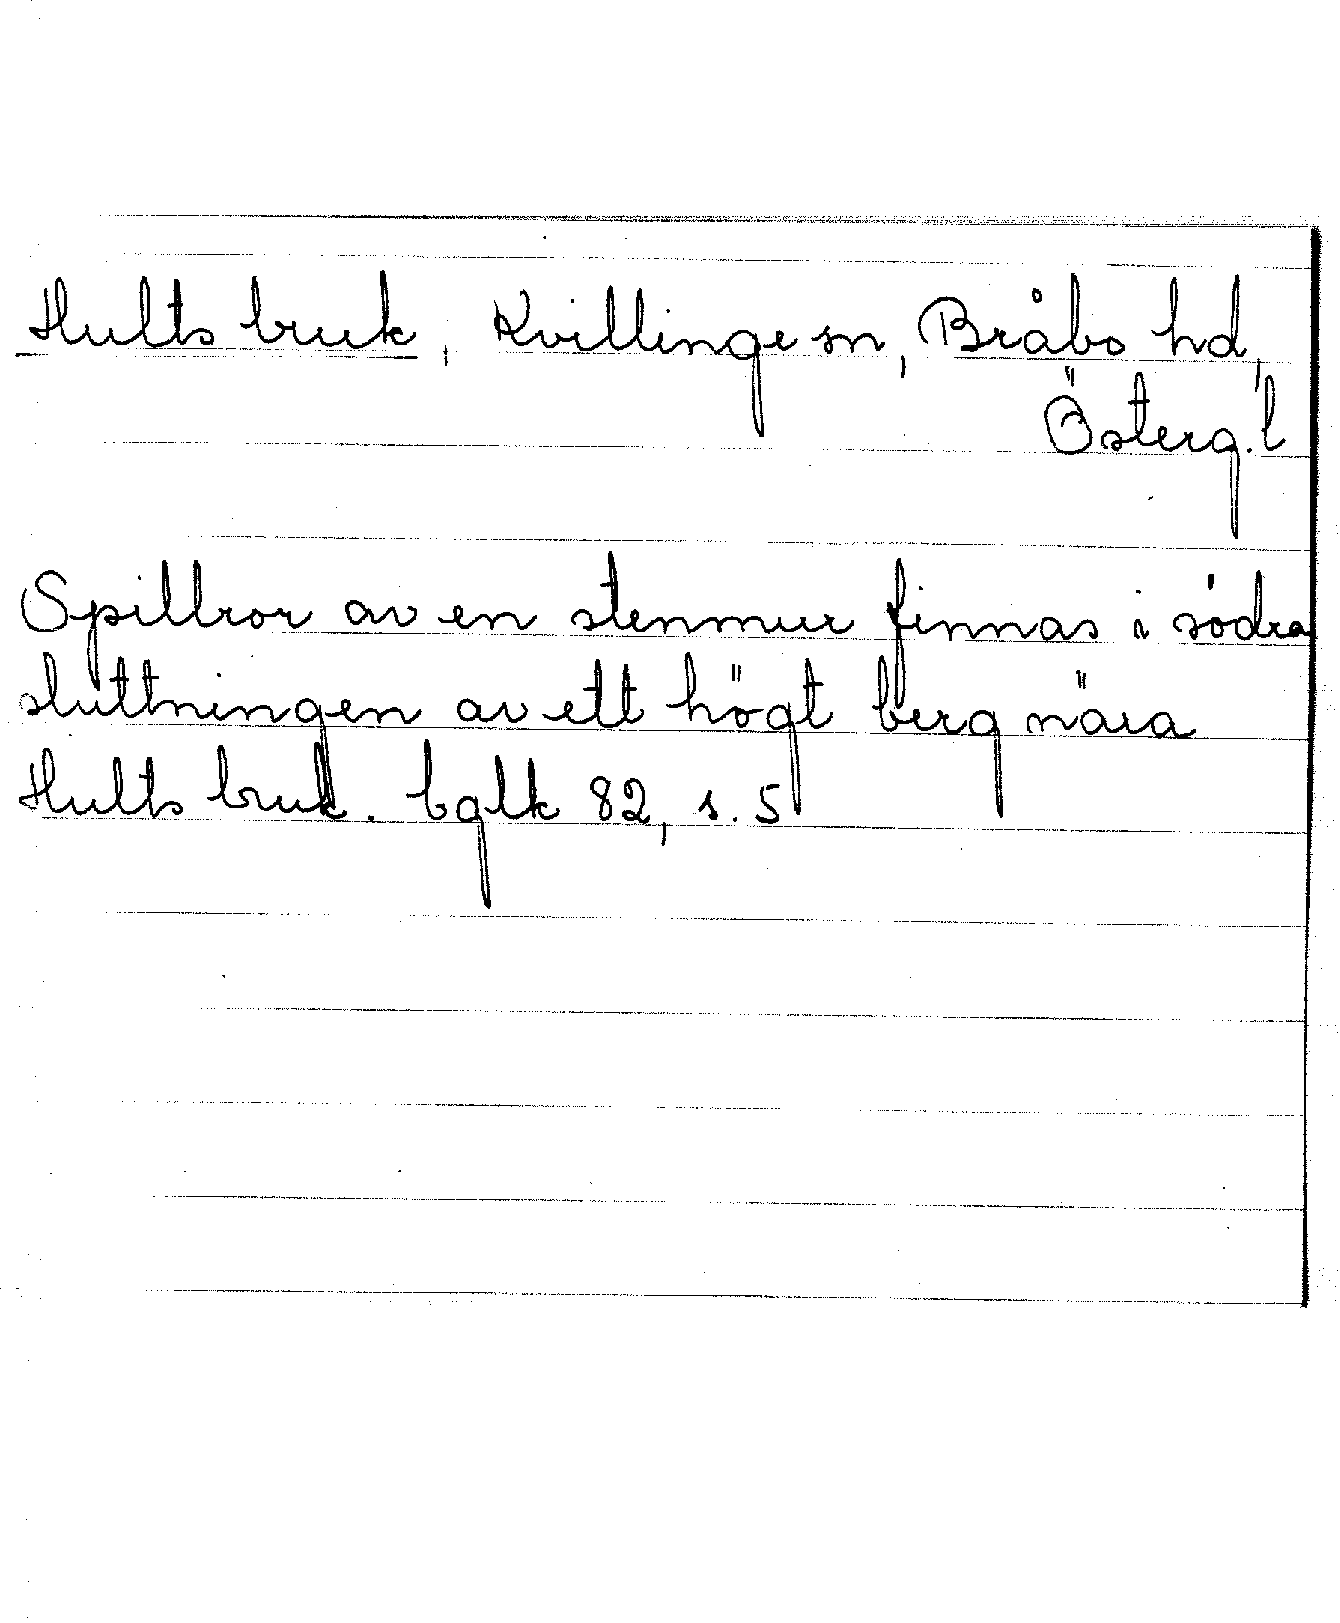 Hults bruk, Kvillinge sn, Bråbo hd,
Österg.l
Spillror av en stenmur finnas i södra
sluttningen av ett högt berg nära
Hults bruk. bglk 82, s. 5